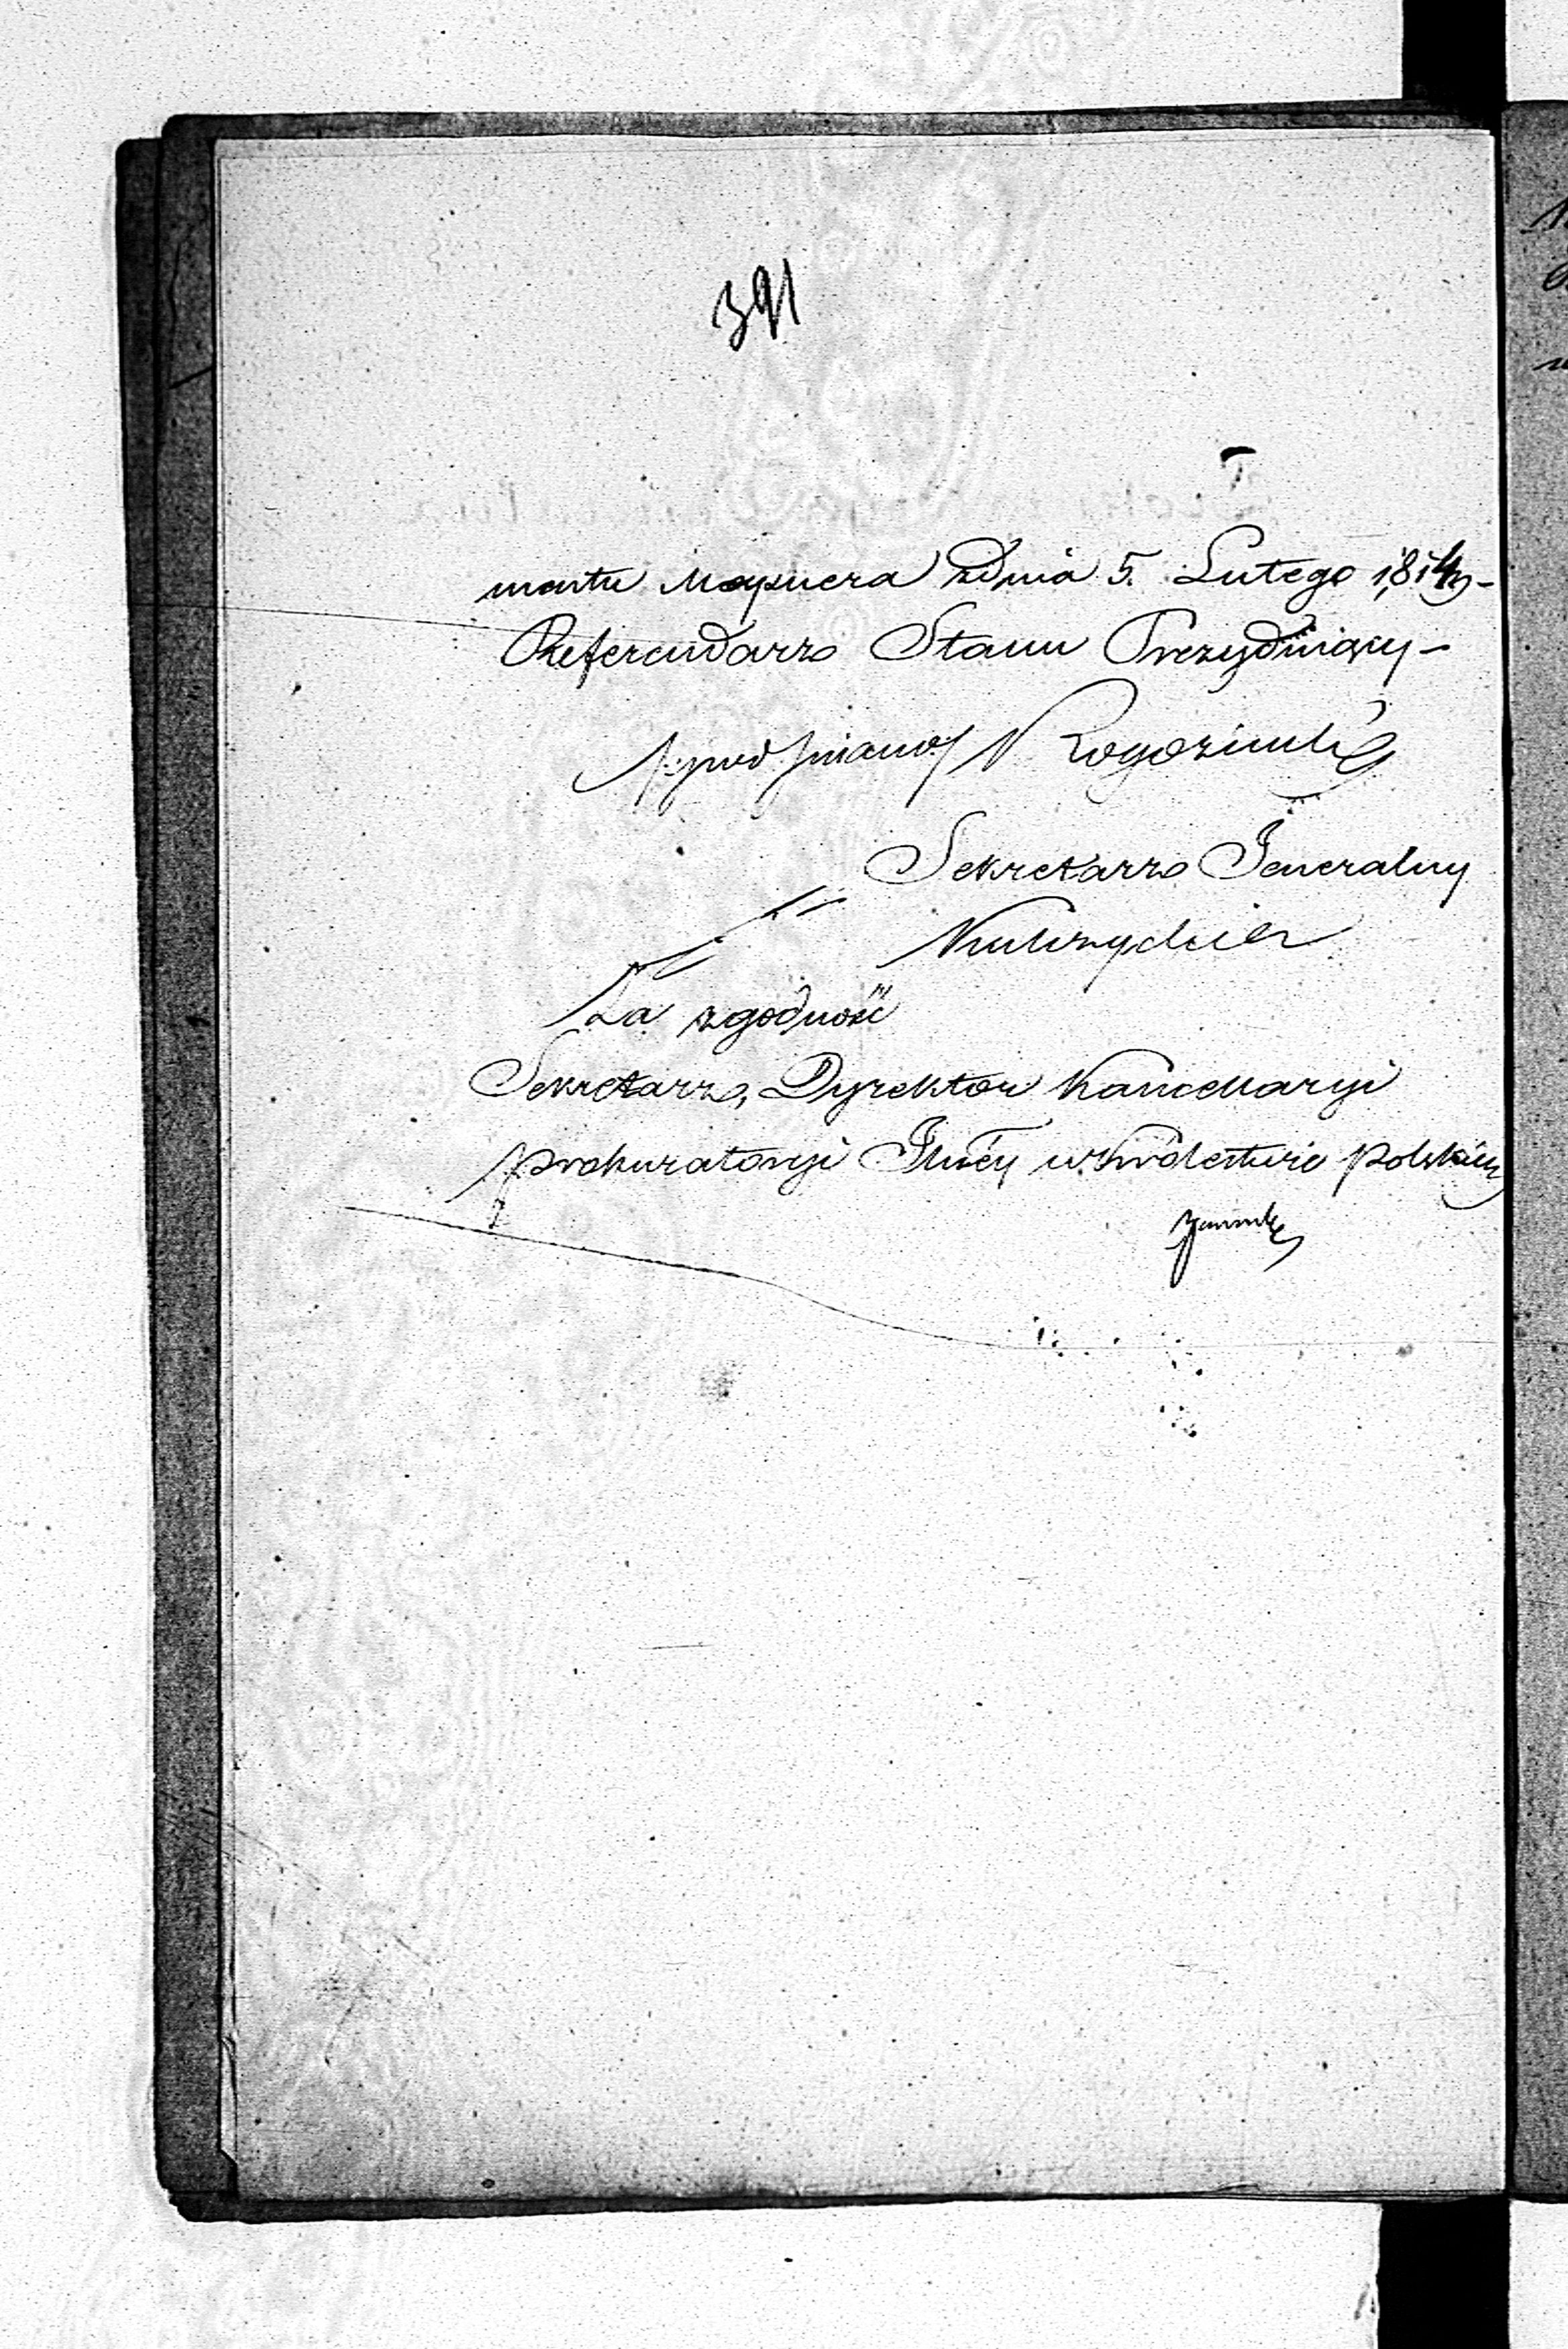 391
mentu Maysnera zdnia 5. Lutego 1814 r-
Referendarz Stanu Prezydujący -
/:podpisano:/ Rogoziński
Sekretarz Jeneralny
Za zgodność
Sekretarz, Dyrektor Kancellaryi
Prokuratoryi Jlney w Królestwie Polskiem